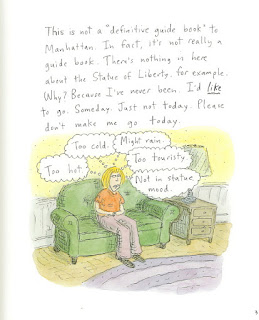 This is not a "definitive guide book" to
Manhattan. In fact, it's not really a
guide book. There's nothing in here
about the Statue of Liberty, for example.
Why? Because I've never been. I'd like
to go. Someday. Just not today. Please
don't make me go today.
Too cold.
Might rain.
Too hot.
Too touristy.
Not in statue
mood.